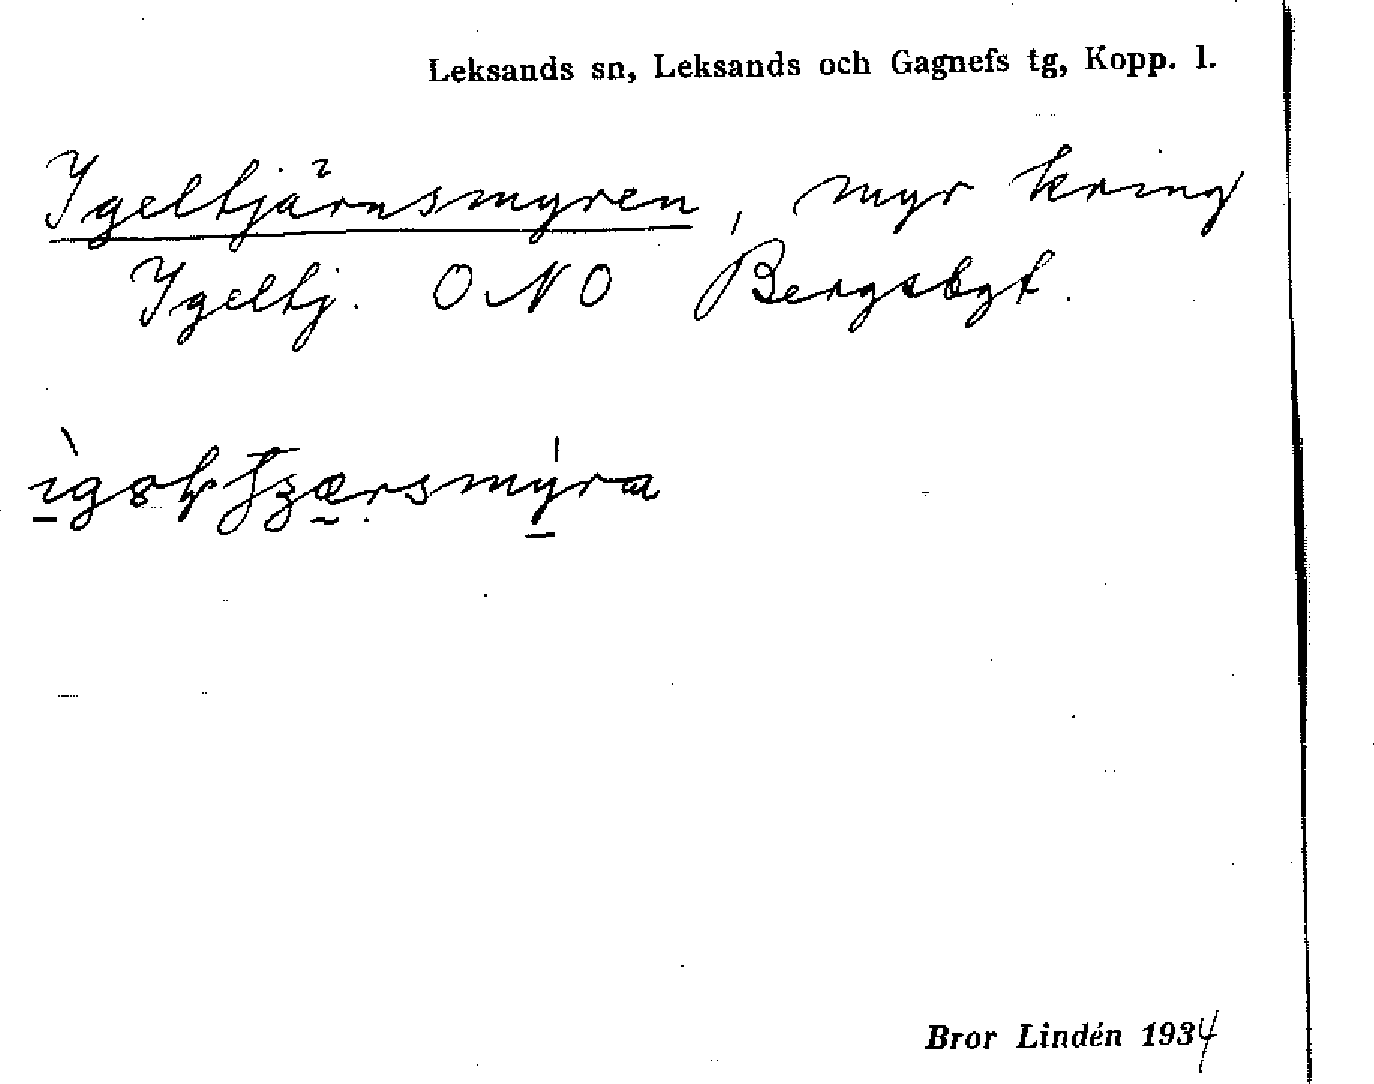 Leksands sn, Leksands och Gagnefs tg, Kopp. l.
Igeltjärnsmyren, myr kring
Igeltj. ONO Bergsbyt.
Bror Lindén 1934